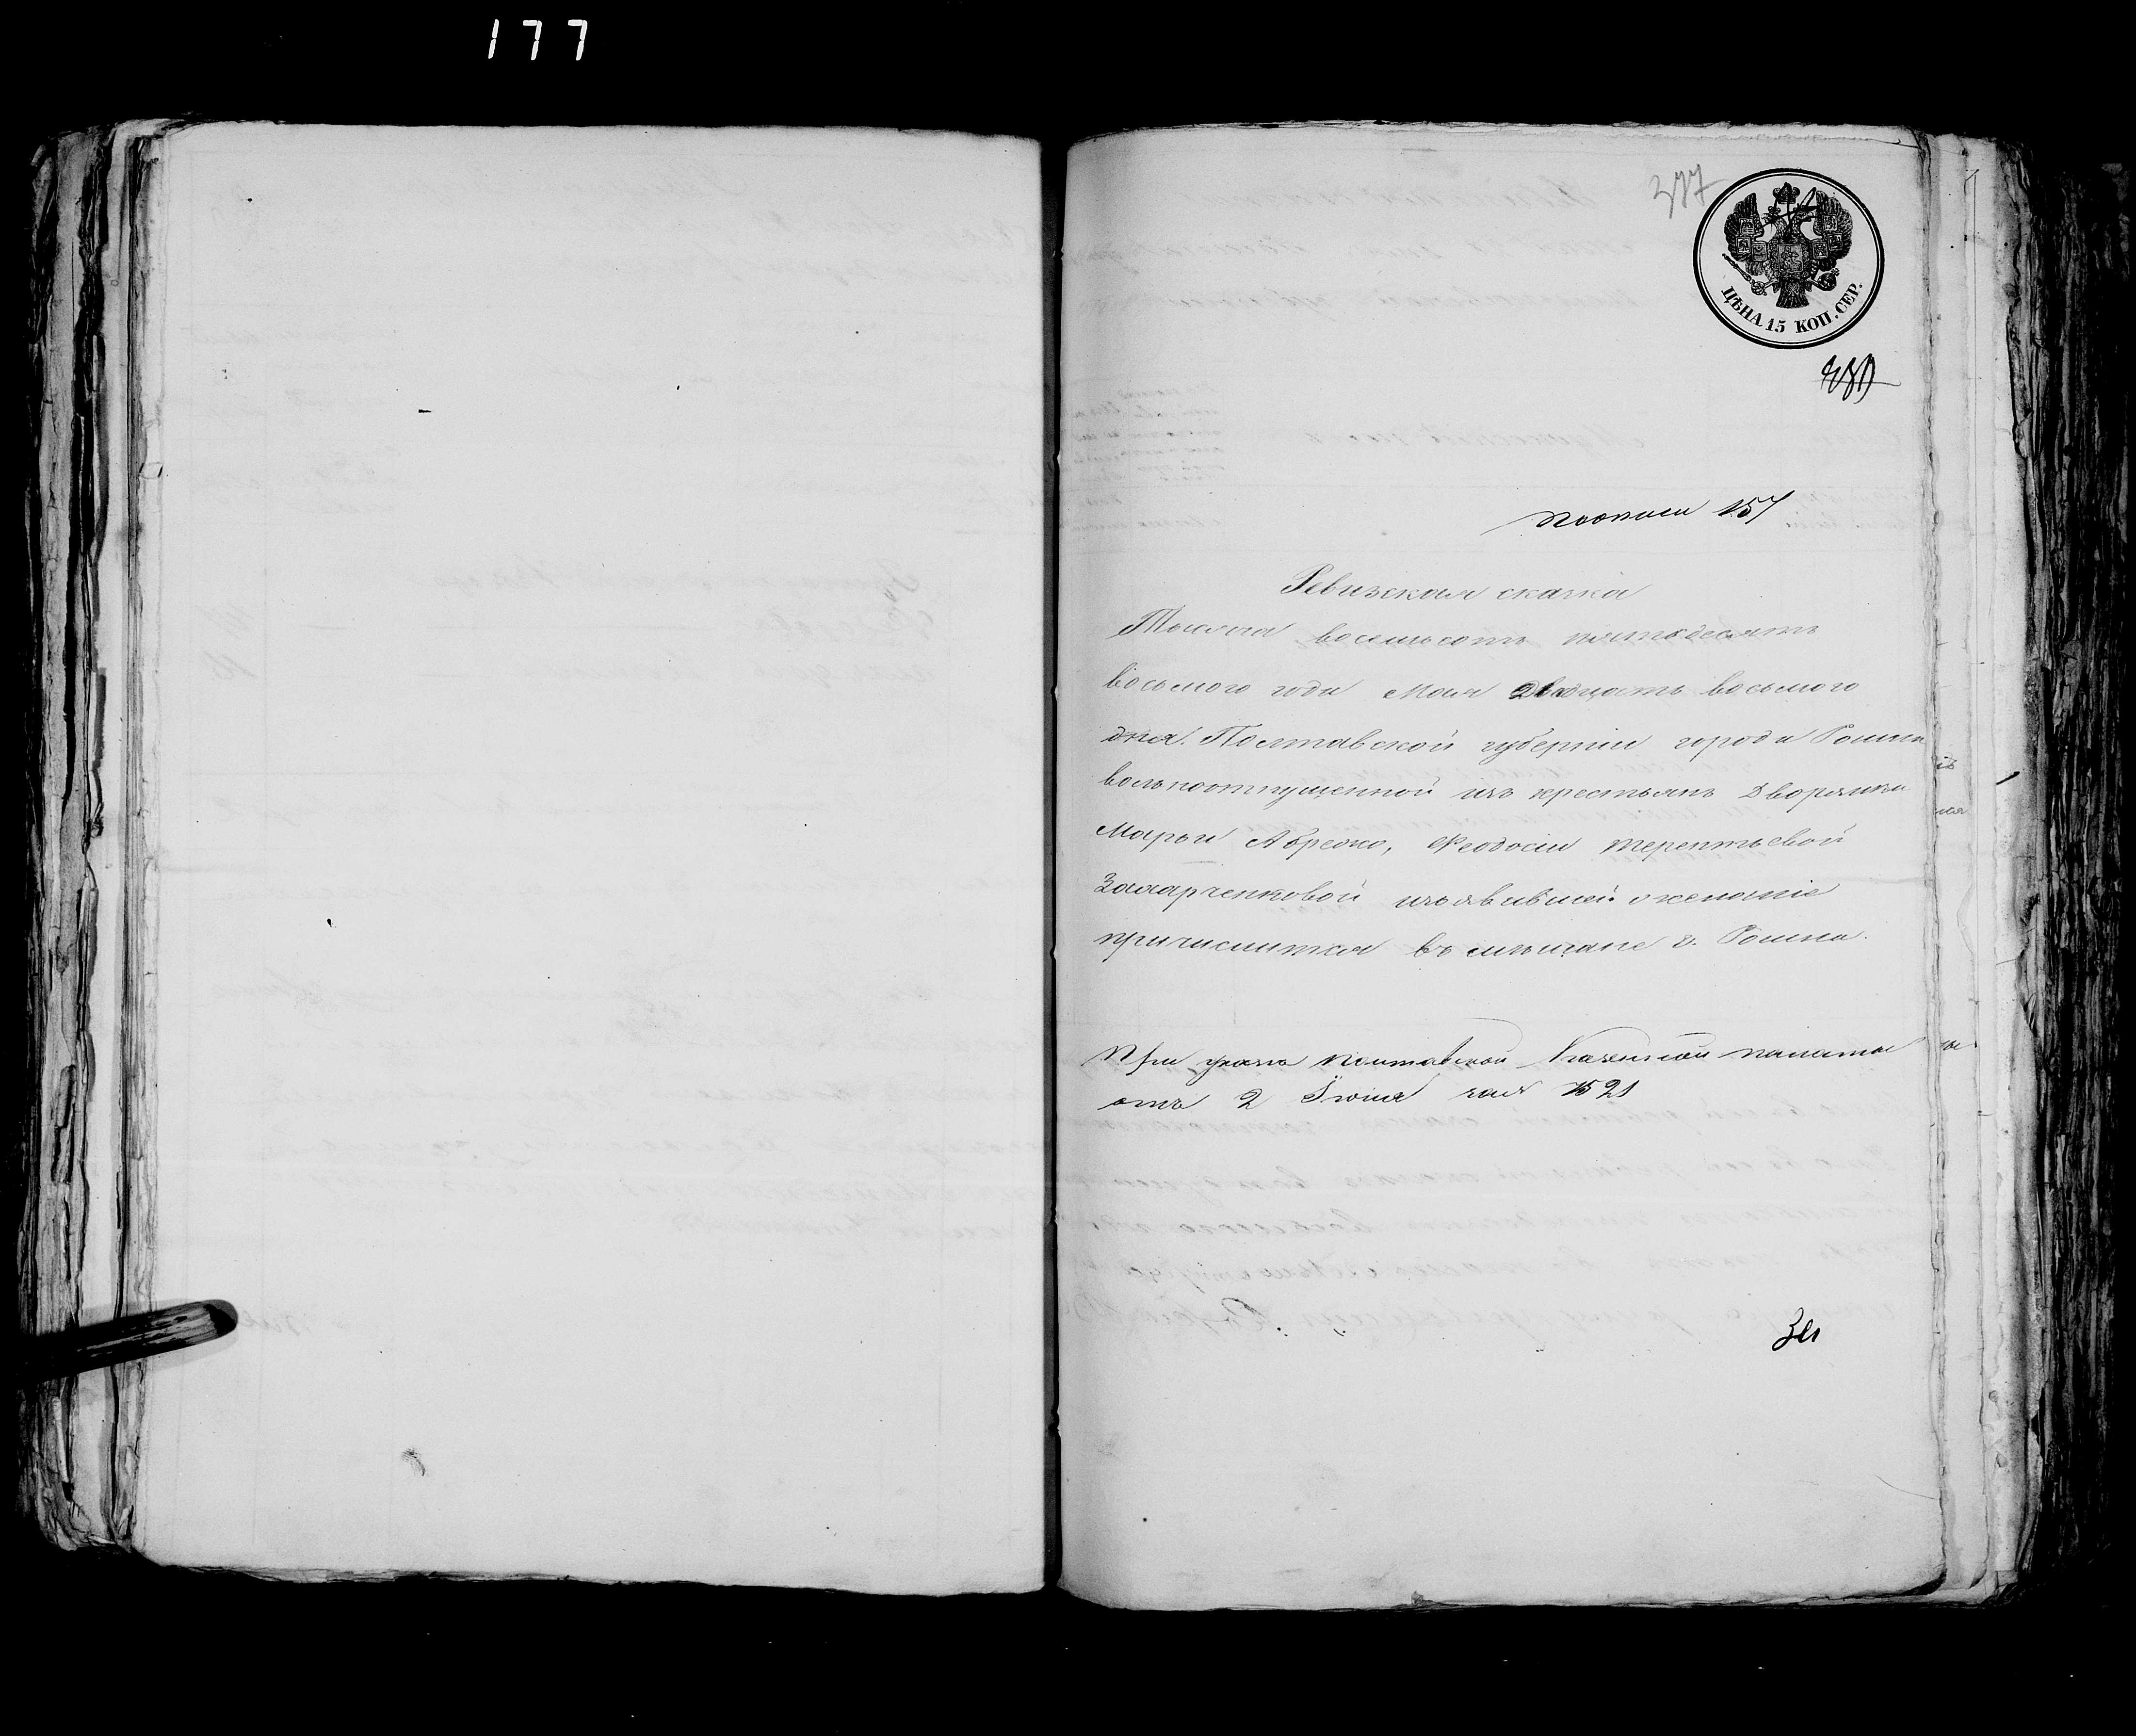 177
377
ЦѢНА 15 КОП. СЕР.
по описи 157
Ревизская сказка
Тысяча восемьсотъ пятьдесятъ
восьмого года Мая двадцать восьмого
дня. Полтавской губерніи города Ромна
вольноотпущенной изъ крестьянъ Дворянки
Марьи Абрежо, Феодосіи Терентьевой
изъявившей желаніе
причислится въ мѣщане г. Ромна.
При указѣ Полтавской Казенной палаты
отъ 2 Іюня за № 1521